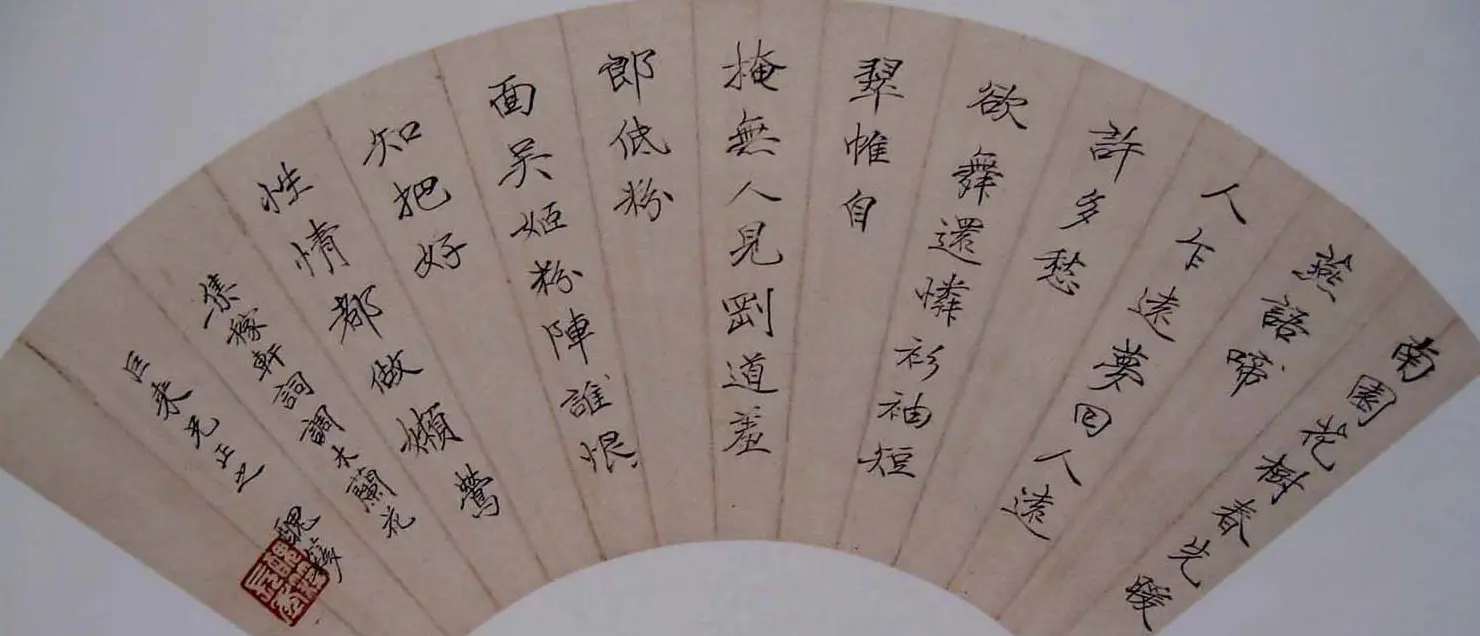 南園花樹春光暖
燕語啼
人乍遠夢回人遠
許多愁
欲舞還憐衫袖短
翠帷自
掩無人見剛道羞
郎低粉
面吳姬粉陣誰恨
知把好
性情都做嬾鶯
集稼軒詞調木蘭花
巨來兄正之 醜簃